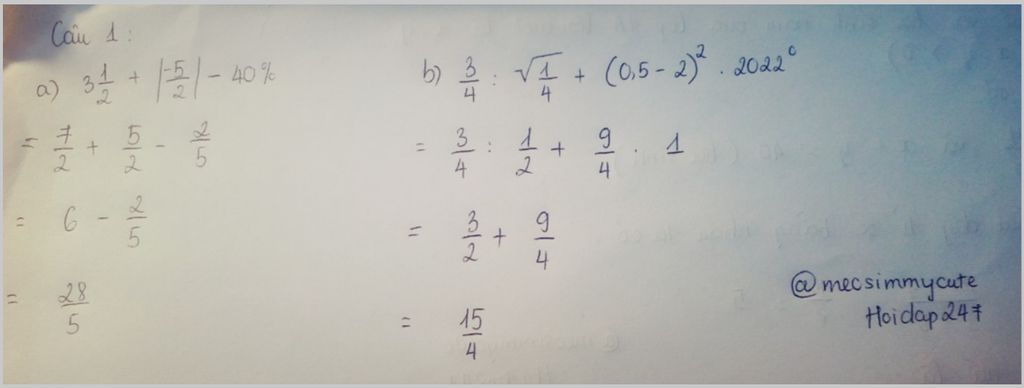 Câu 1:
a) 3 1/2 + |-5/2| - 40%
= 7/2 + 5/2 - 2/5
= 6 - 2/5
= 28/5
b) 3/4 : √1/4 + (0,5 - 2)² . 2022⁰
= 3/4 : 1/2 + 9/4 . 1
= 3/2 + 9/4
= 15/4
@mecsimmycute
Hoidap247